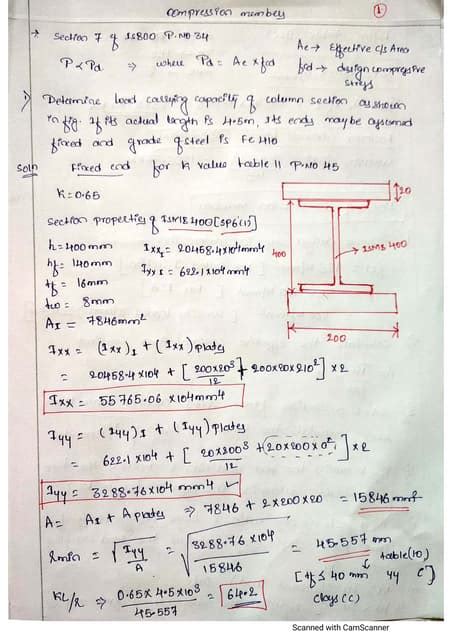 compression member
①
→ Section 7 of IS800 P.NO 34
Ae → Effective c/s Area
P < Pd ⇒ where Pd = Ae x fcd
fcd → design compressive stress
1) Determine load carrying capacity of column section as shown
in fig. If its actual length is 4.5m, its ends may be assumed
fixed and grade of steel is Fe 410
Soln
Fixed end for K value table 11 P.NO 45
K = 0.65
section properties of ISMB 400 [SP6(1)]
h = 400 mm Ixx_I = 20458.4x10⁴mm⁴
bf = 140mm Iyy_I = 622.1x10⁴mm⁴
tf = 16mm
tw = 8mm
A_I = 7846mm²
20
400
→ ISMB 400
200
Ixx = (Ixx)_I + (Ixx)plates
= 20458.4 x10⁴ + [200x20³/12 + 200x20x210²] x 2
Ixx = 55765.06 x10⁴mm⁴
Iyy = (Iyy)_I + (Iyy)plates
= 622.1 x10⁴ + [20x200³/12 + (20x200x0²)] x 2
Iyy = 3288.76x10⁴ mm⁴ ✓
A = A_I + A plates ⇒ 7846 + 2x200x20 = 15846 mm²
rmin = √(Iyy/A) = √(3288.76 x10⁴/15846) = 45.557 mm
table(10)
[tf ≤ 40 mm yy c]
class (c)
KL/r ⇒ 0.65 x 4.5x10³/45.557 = 64.2
Scanned with CamScanner